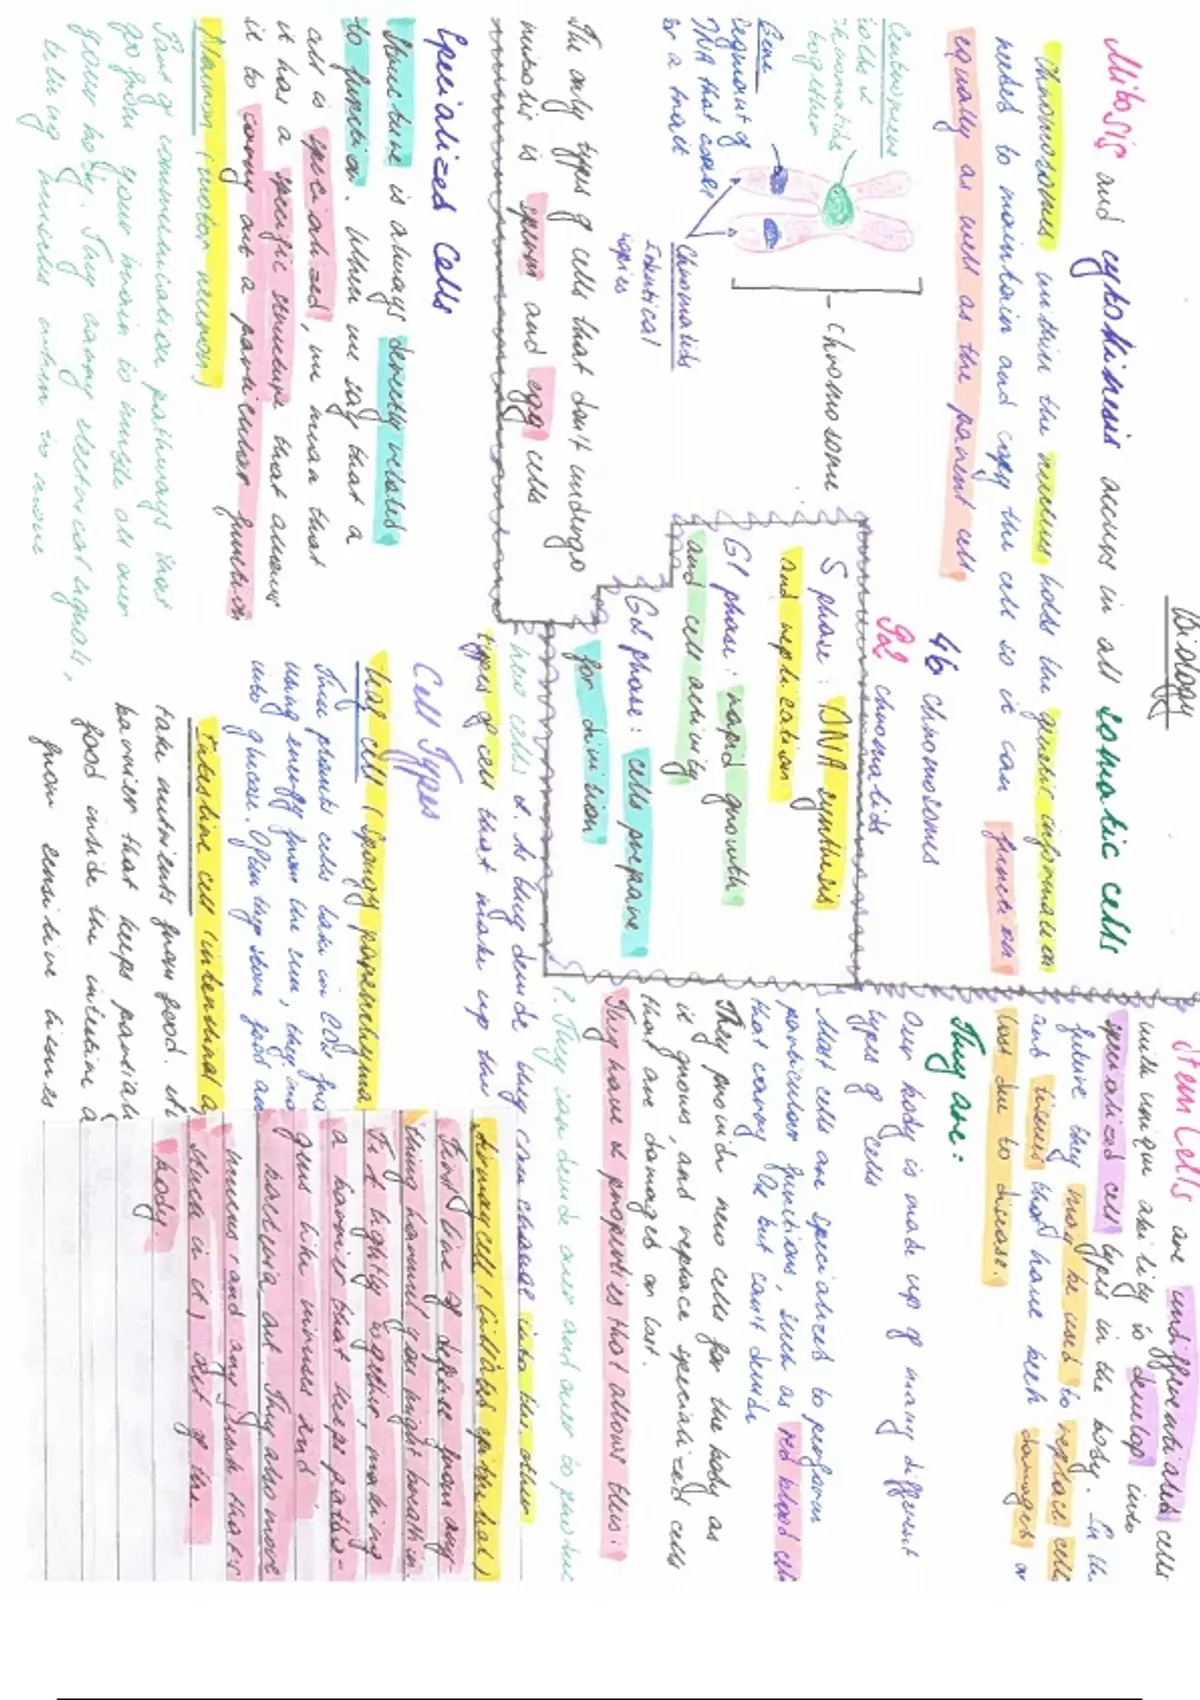 Biology
Mitosis and cytokinesis occurs in all somatic cells
Chromosomes within the nucleus holds the genetic information
needs to maintain and copy the cell so it can function
equally as well as the parent cell
46 chromosomes
92 chromatids
Centromere
holds 2
chromatids
together
Gene
segment of
DNA that codes
for a trait
Chromatids
Identical
copies
- chromosome
S phase: DNA synthesis
and replication
G1 phase: rapid growth
and cell activity
G2 phase: cells prepare
for division
The only types of cells that don't undergo
mitosis is sperm and egg cells
Specialized Cells
Structure is always directly related
to function. When we say that a
cell is specialized, we mean that
it has a specific structure that allows
it to carry out a particular function
Neuron (motor neuron)
Part of communication pathways that
go from your brain to muscle all over
your body. They carry electrical signals,
telling muscles when to move
Stem Cells are undifferentiated cells
with unique ability to develop into
specialized cell types in the body. In the
future they may be used to replace cells
and tissues that have been damages or
lost due to disease.
They are:
Our body is made up of many different
types of cells
Most cells are specialized to perform
particular functions, such as red blood cell
that carry O2 but can't divide
They provide new cells for the body as
it grows, and replace specialized cells
that are damages or lost.
They have 2 properties that allows this:
1. They can divide over and over to produce
new cells 2. As they divide they can change into the other
types of cell that make up the
Cell Types
Leaf cell (Spongy parenchyma
These plants cells take in CO2 from
using energy from the sun, they
into glucose. Often they store food as
Intestine cell (intestinal
take nutrients from food.
barrier that keeps partially
food inside the intestine
from sensitive tissues
Airway cell (ciliated epithelial)
First line of defense from any-
thing harmful you might breath in.
Fit tightly together, making
a barrier that keeps patho-
gens like viruses and
bacteria out. They also move
mucus (and any junk that's
stuck in it) out of the
body.